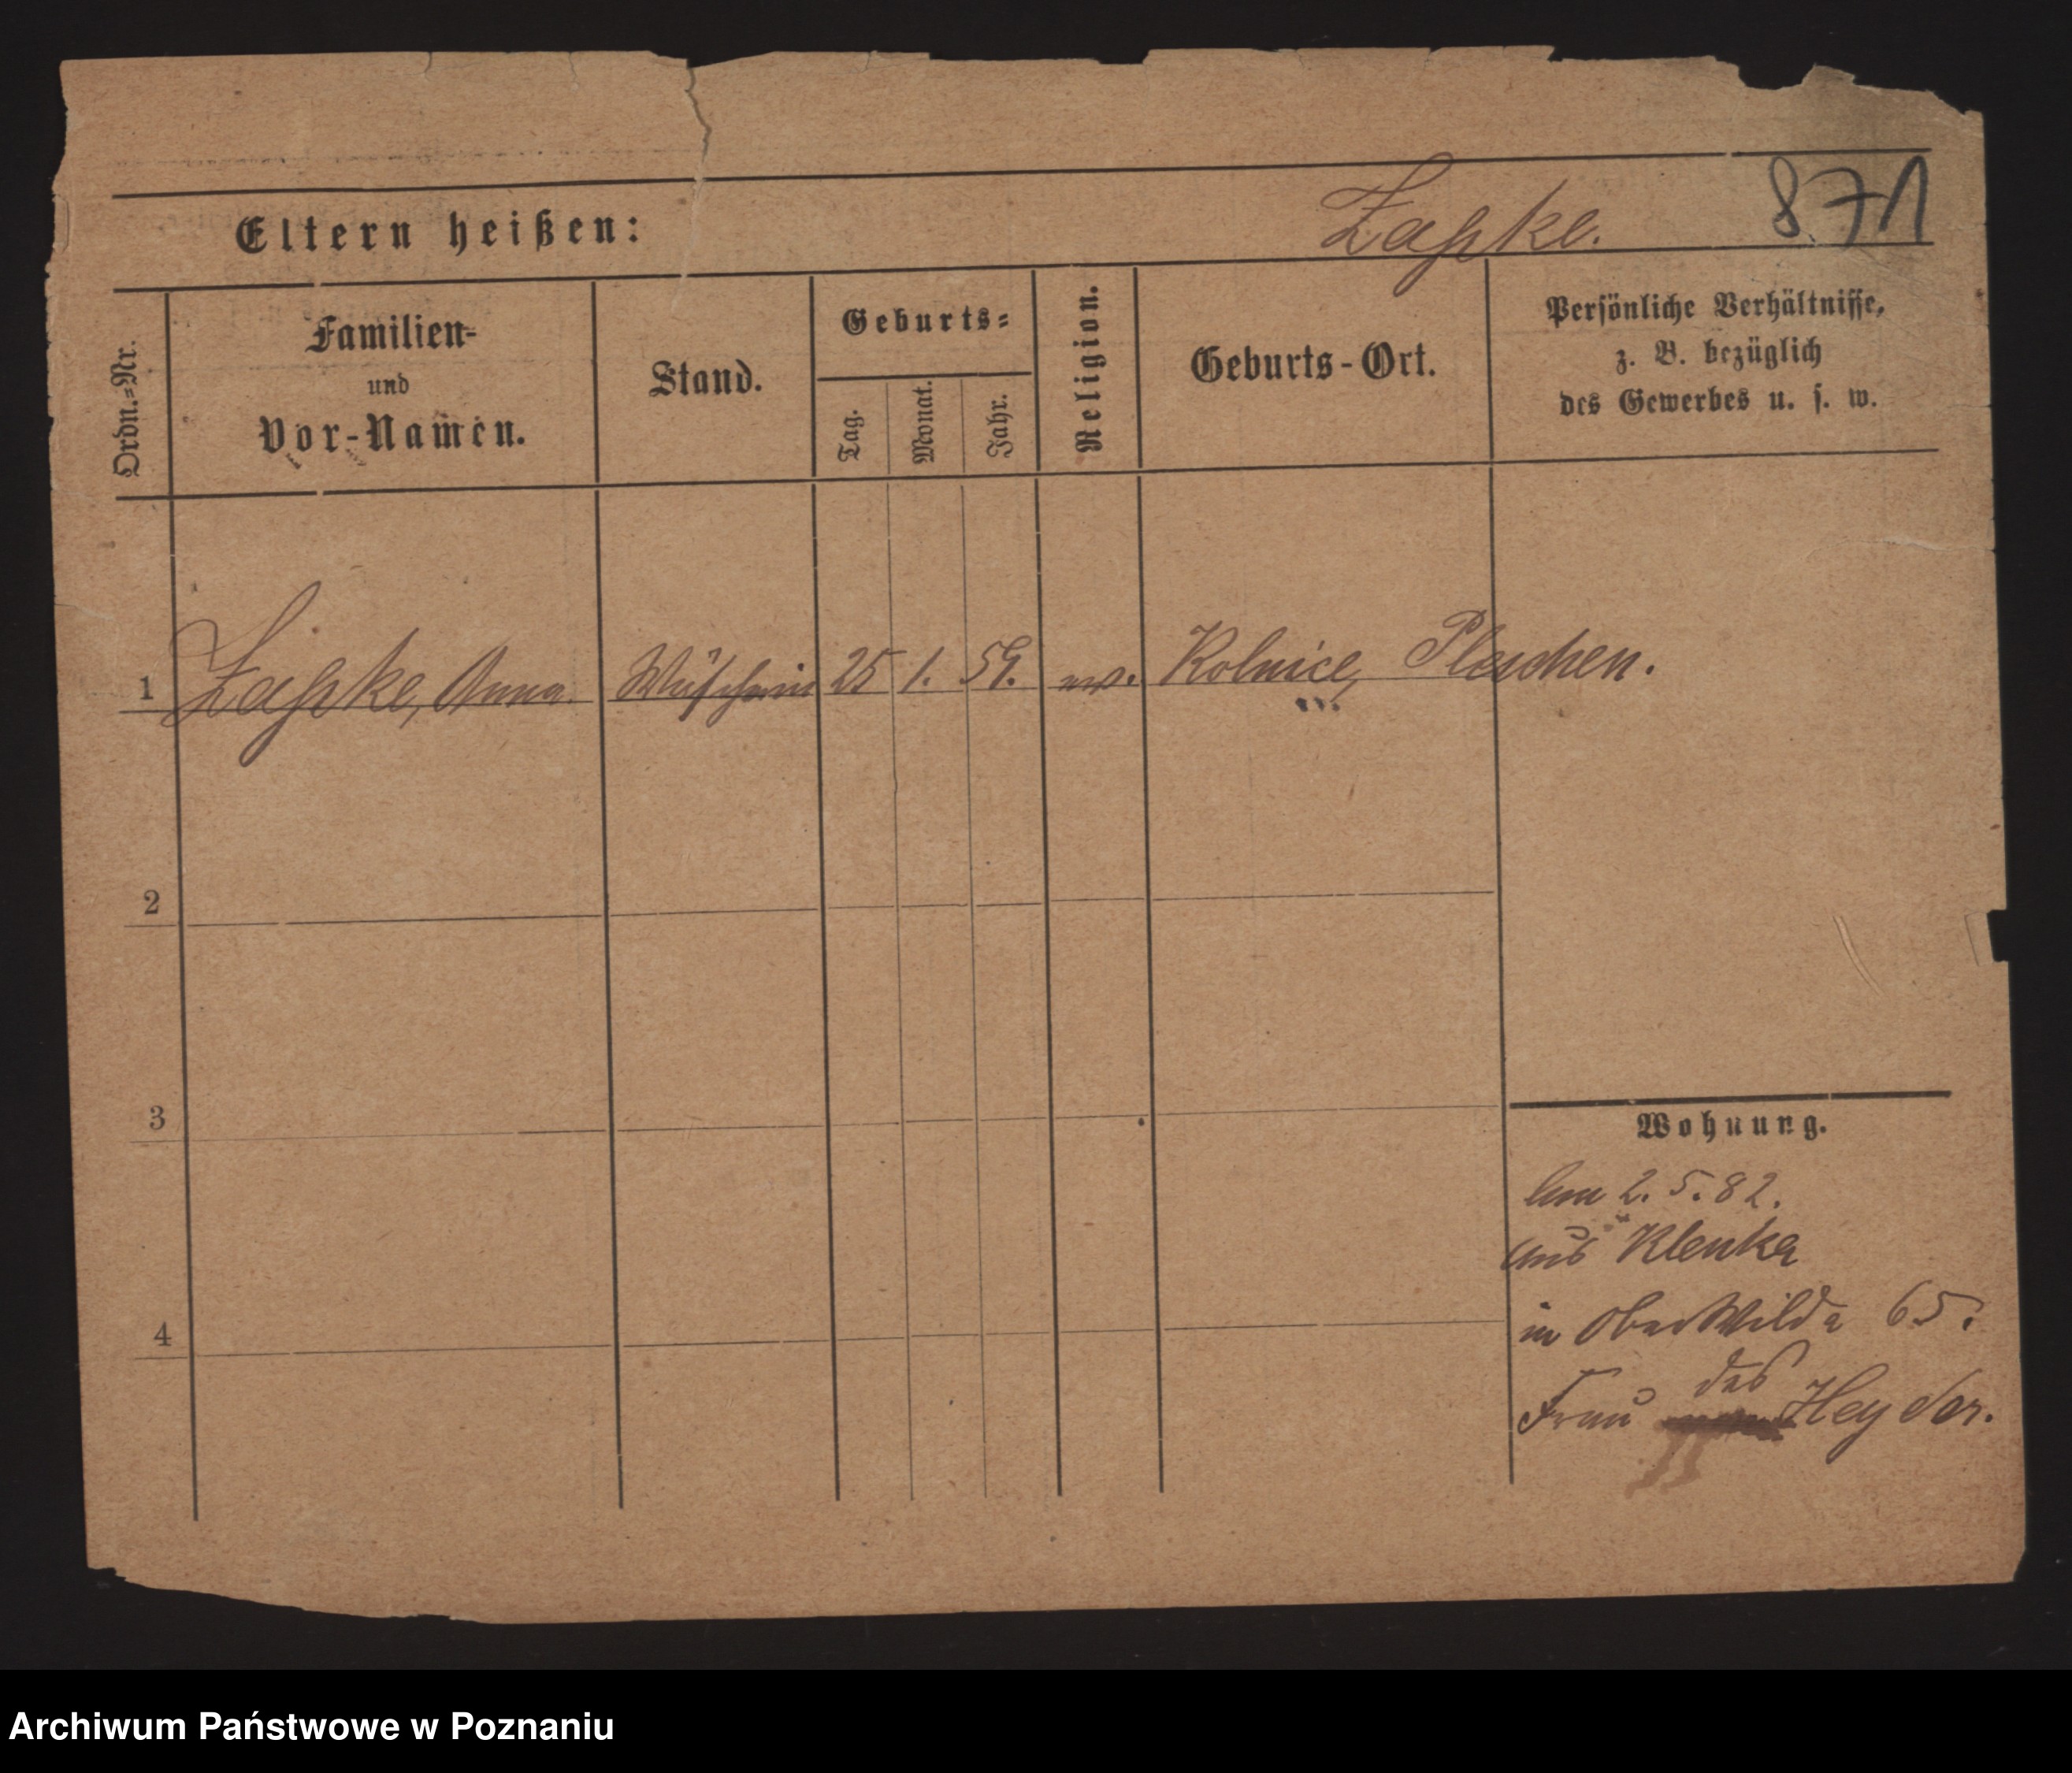 Eltern heißen:
Zapke.
871
Ordn.=Nr.
Familien-
und
Vor-Namen.
Stand.
Geburts=
Tag.
Monat.
Jahr.
Religion.
Geburts-Ort.
Persönliche Verhältnisse,
z. B. bezüglich
des Gewerbes u. s. w.
1 Zapke, Anna. 25 1. 59. ev. Kolnice, Pleschen.
2
3
4
Wohnung.
Am 2. 5. 82.
aus Klenka
in Ober Wilda 65.
des
Frau Heyder.
Archiwum Państwowe w Poznaniu